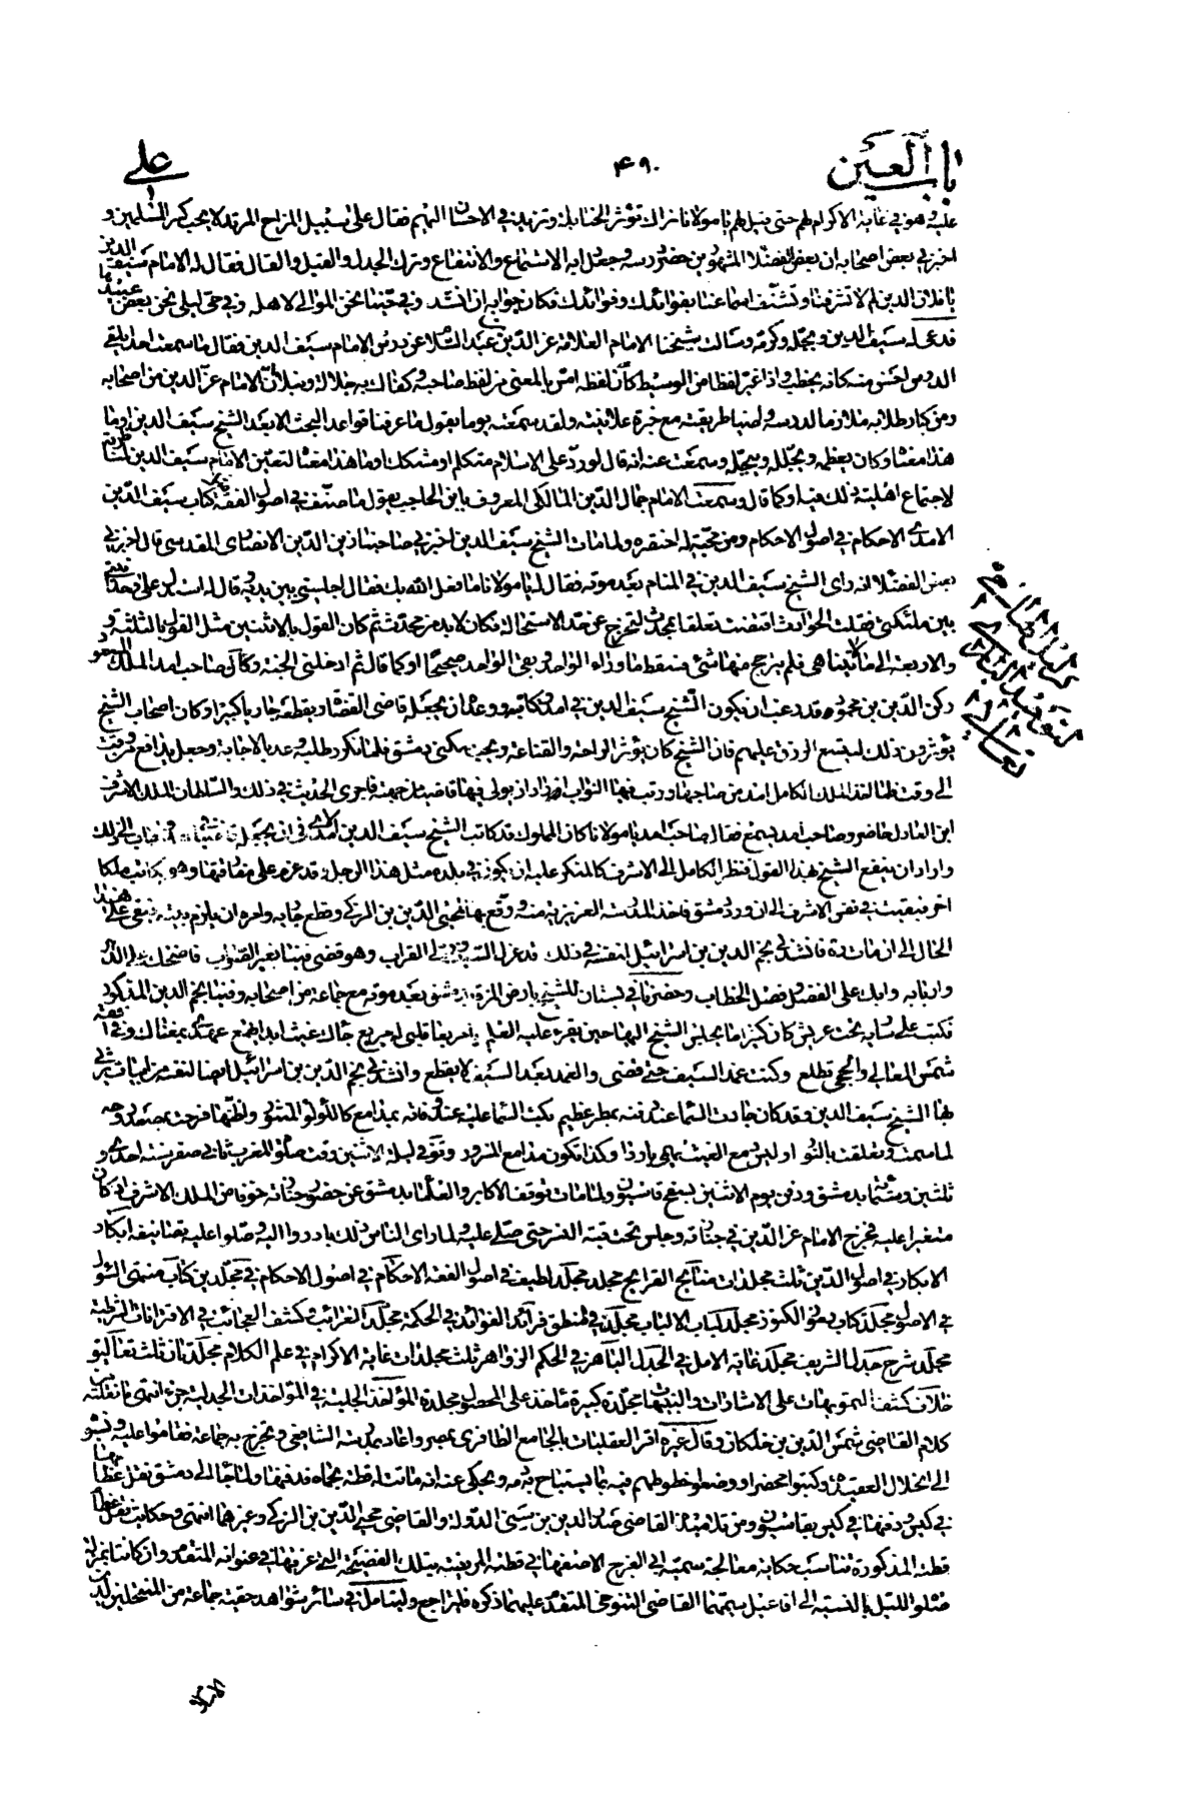 باب العين
۴۹۰
علي
عليه وهو في غاية الاكرام لهم حتى قيل لهم يا مولانا نراك تؤثر الحنابلة وتزيد في الاحسان اليهم فقال على سبيل المزاح المرتد لا يحب كسر المسلمين و
اخبرني بعض اصحابه ان بعض الفضلا المشهورين حضر درسه وجعل دابه الاستماع والانتفاع وترك الجدل والقيل والقال فقال له الامام سيف الدين
يا فلان الدين لم لا تشرفنا وتشنف اسماعنا بفوائدك وفرائدك فكان جوابه ان انشد وفي حينا نحن الموالي لاهله وفي حي ليلى نحن بعض عبيدها
فدعا له سيف الدين وبجله وكرمه وسالت شيخنا الامام العلامة عز الدين بن عبد السلام عن درس الامام سيف الدين فقال ما سمعت احدا يلقي
الدرس احسن منه كانه يخطب واذا غير لفظا من الوسيط كان لفظه امس بالمعنى من لفظ صاحبه وكفاك به جلالة ونبلا ان الامام عز الدين من اصحابه
ومن كبار طلابه ملازما لدرسه لضبا طريقته مع خبرة علانيته ولقد سمعته يوما يقول ما عرفنا قواعد البحث الا بعد الشيخ سيف الدين او ما
هذا معناه وكان يعظمه ويجلله ويبجله وسمعت عنه انه قال لو ورد على الاسلام متكلم او مشكك او ما هذا معناه لتعين الامام سيف الدين لمناظرته
لاجتماع اهلية ذلك فيه او كما قال وسمعت الامام جمال الدين المالكي المعروف بابن الحاجب يقول ما صنف في اصول الفقه مثل كتاب سيف الدين
الامدي الاحكام في اصول الاحكام ومن محبته له اختصره ولما مات الشيخ سيف الدين اخبرني صاحبنا زين الدين الانصاري المقدسي قال اخبرني
بعض الفضلا انه راى الشيخ سيف الدين في المنام بعد موته فقال له يا مولانا ما فعل الله بك فقال اجلسني بين يديه وقال له استدل على وحدانيتي
بين ملئكتي فقلت الحوادث اقتضت تعلقا بمحدث لتخرج عن حد الاستحالة فكان لا بد من محدث ثم كان القول بالاثنين مثل القول بالثلثة و
والاربعة الى ما لا يتناهى فلم يترجح منها شئ فسقط ما وراء الواحد وبقي الواحد صحيحا او كما قال ثم ادخلني الجنة وكان صاحب امد الملك المسعود
ركن الدين بن محمود قد رغب ان يكون الشيخ سيف الدين في امد فكاتبه ووعده ان يجعله قاضي القضاة ويقطعه جاريا كبيرا وكان اصحاب الشيخ
يؤثرون ذلك ليتسع الرزق عليهم فان الشيخ كان يؤثر الراحة والقناعة ويحب سكنى دمشق فلما تكرر طلبه وعده بالاجابة وجعل يدافع من وقت
الى وقت فلما اخذ الملك الكامل امد من صاحبها ورتب فيها النواب اراد ان يولي فيها قاضيا من جهته فاجرى الحديث في ذلك والسلطان الملك الاشرف
ابن العادل حاضر وصاحب امد يسمع فقال صاحب امد يا مولانا كان المملوك قد كاتب الشيخ سيف الدين الامدي في ان يجعله قاضيا
واراد ان ينفع الشيخ بهذا القول فنظر الكامل الى الاشرف كالمنكر عليه ان يكون في بلده مثل هذا الرجل قد عزم على مفارقها وهو يكاتب ملكا
اخر فبقيت في نفس الاشرف الى ان ورد دمشق فاخذ المدرسة العزيزية منه ووقع بها لمحيي الدين بن الزكي وقطع جاريه وامره ان يلزم بيته فبقي على هذا
الحال الى ان مات فانشدني نجم الدين بن اسرائيل لنفسه في ذلك قد عزل السيف وولي القراب وهو قضى فينا بغير الصواب فاضحك على الدهر
واربابه وابك على الفضل وفصل الخطاب وحضرنا في بستان للشيخ بارض المزة بدمشق بعد موته مع جماعة من اصحابه وفينا نجم الدين المذكور
فكتب على سارية تحت عريش كان كثيرا ما يجلس الشيخ اليها حين يقرء عليه العلم يا مربعا قلبي له مربع جاك غيث ابدا يهمع عهدي بمغناك وفي افقه
شمس المعالي والحجى تطلع وكنت غمد السيف حتى قضى والغمد بعد السيف لا يقطع وانشدني نجم الدين بن اسرائيل ايضا لنفسه من ابيات يرثي
بها الشيخ سيف الدين وقد كان جادت السماء عند دفنه بمطر عظيم بكت السماء عليه عند وفاته بمدامع كاللؤلؤ المنثور واظنها فرحت بمصعد روحه
لما سمت وتعلقت بالنور اوليس دمع الغيث يهمي باردا وكذا تكون مدامع المسرور وتوفي ليلة الاثنين وقت صلوة المغرب ثاني صفر سنة احدى و
ثلثين وستمائة بدمشق ودفن يوم الاثنين بسفح قاسيون ولما مات توقف الاكابر والعلماء بدمشق عن حضور جنازته خوفا من الملك الاشرف اذ كان
متغيرا عليه فخرج الامام عز الدين في جنازته وجلس تحت قبة النسر حتى صلى عليه ولما راى الناس ذلك بادروا اليه وصلوا عليه تصانيفه ابكار
الافكار في اصول الدين ثلث مجلدات منائح القرايح مجلد مجلد لطيف في اصول الفقه الاحكام في اصول الاحكام في مجلدين كتاب منتهى السؤل
في الاصول مجلد كتاب رموز الكنوز مجلد لباب الالباب مجلد في المنطق فرائد الفوائد في الحكمة مجلد الغرائب وكشف العجائب في الاقترانات الشرطية
مجلد شرح جدل الشريف مجلد غاية الامل في الجدل الباهر في الحكم الزواهر ثلث مجلدات غاية الاكرام في علم الكلام مجلدتان ثلث تعاليق
خلاف كشف التمويهات على الاشارات والتنبيهات مجلدة كبيرة ماخذ على المحصول مجلدة المؤاخذ الجلية في المؤاخذات الجدلية جزء انتهى ما نقلته من
كلام القاضي شمس الدين بن خلكان وقال غيره اقرا العقليات بالجامع الظافري بمصر واعاد بمدرسة الشافعي وتخرج به جماعة فقاموا عليه ونسبوه
الى انحلال العقيدة وكتبوا محضرا ووضعوا خطوطهم فيه بما يستباح به دمه ويحكى عنه انه ماتت له قطة بحماة فدفنها ولما جاء الى دمشق نقل عظامها
في كيس ودفنها في كيس بقاسيون ومن تلامذة القاضي صدر الدين بن سني الدولة والقاضي محيي الدين بن الزكي وغيرهما انتهى وحكاية نقل عظام
قطته المذكورة تناسب حكاية معالجة سميه ابي الفرج الاصفهاني قطته المريضة بتلك الفضيحة التي عرفتها في عنوانه المتقدم وان كانتا بمنزلة
متلو اللئيل بالنسبة الى افاعيل سميهما القاضي التنوخي المتقدم عليهما ذكره فليراجع وليتامل في سائر شواهد حقية جماعة من المنتحلين لدين
الاسلام